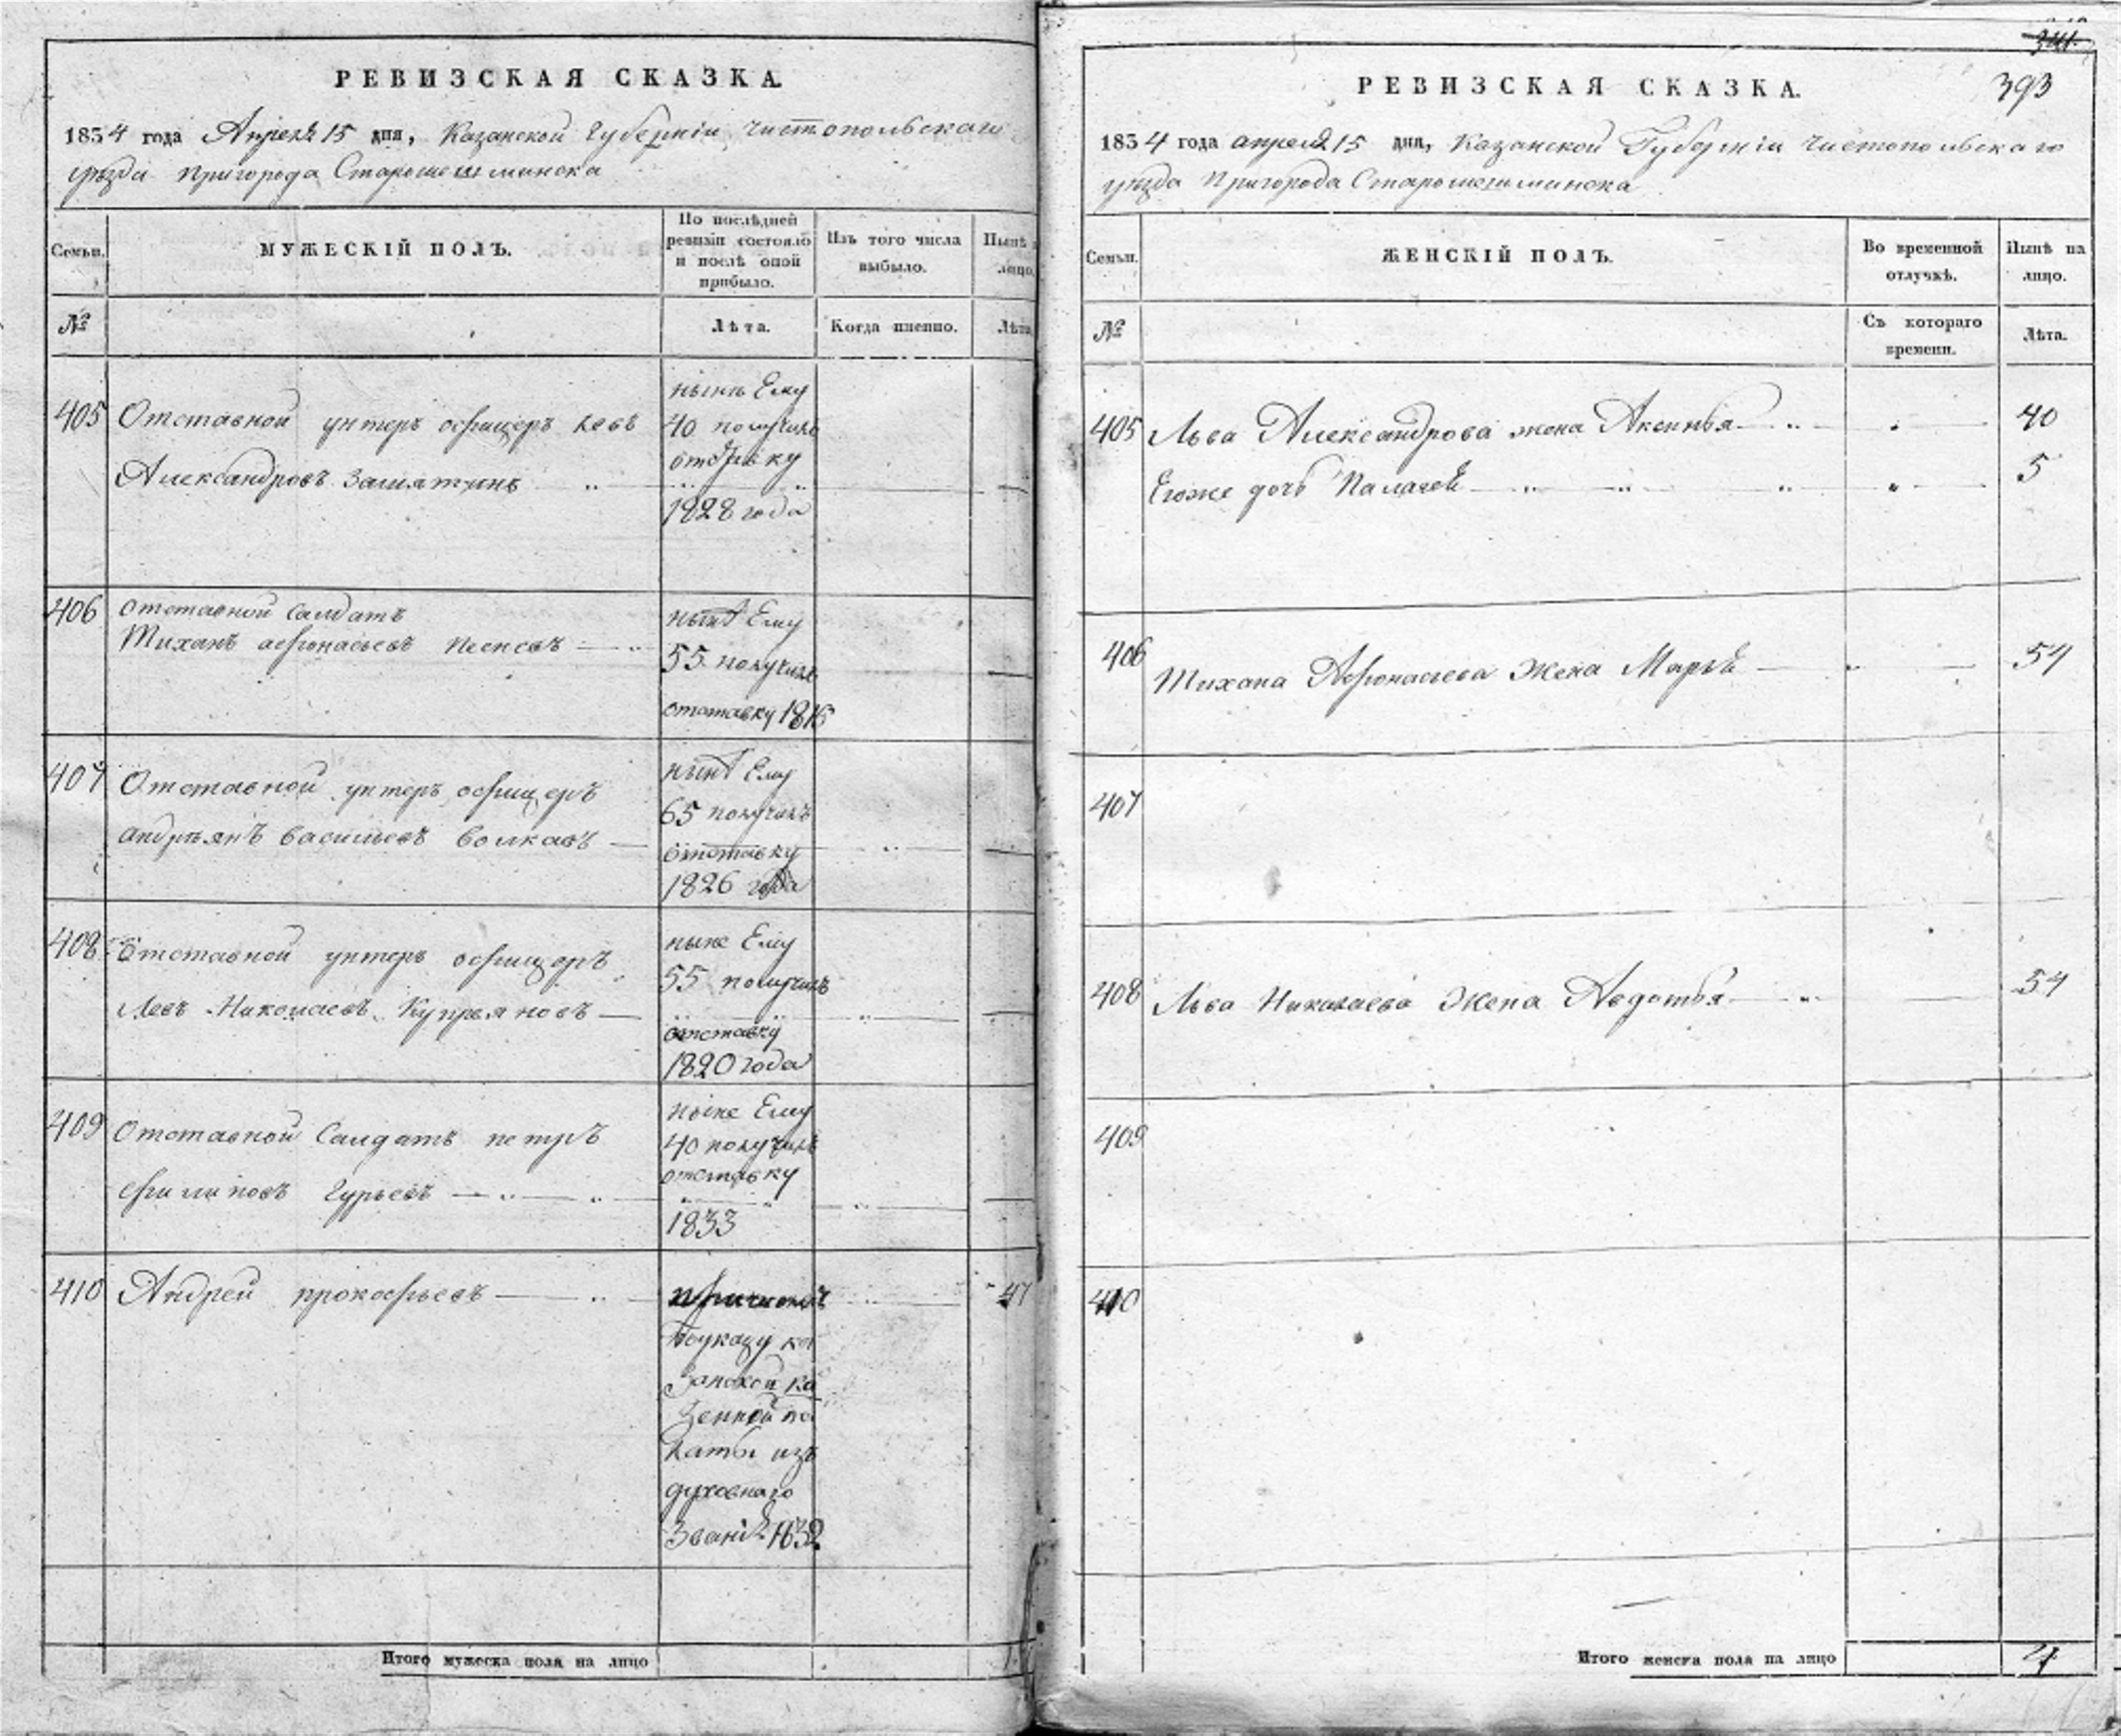 РЕВИЗСКАЯ СКАЗКА.
1834 года Апреля 15 дня, Казанской Губернiи Чистопольскаго
уезда пригорода Старошешминска
Семьи.
МУЖЕСКIЙ ПОЛЪ.
По послѣдней ревизiи состояло и послѣ оной прибыло.
Изъ того числа выбыло.
Нынѣ лицо.
№
Лѣта.
Когда именно.
Лѣта
405
Отставной унтеръ офицеръ Левъ
Александровъ Замятинъ
ныне Ему
40 получилъ
отставку
1828 года
406
отставной Салдатъ
Тиханъ афонасьевъ
ныне Ему
55 получилъ
отставку 1816
407
Отставной унтеръ офицеръ
андреянъ васильевъ волкавъ
ныне Ему
65 получилъ
отставку
1826 года
408
Отставной унтеръ офицеръ
Левъ Николаевъ Купреяновъ
ныне Ему
55 получилъ
отставку
1820 года
409
Отставной Салдатъ петръ
филиповъ Гурьевъ
ныне Ему
40 получилъ
отставку
1833
410
Андрей прокофьевъ
47
по указу ка
занской ка
зенной па
латы изъ
духовнаго
Званiя 1832
Итого мужеска пола на лицо
393
РЕВИЗСКАЯ СКАЗКА.
1834 года апреля 15 дня, Казанской Губернiи Чистопольскаго
уезда Пригорода Старошешминска
Семьи.
ЖЕНСКIЙ ПОЛЪ.
Во временной отлучкѣ.
Нынѣ на лицо.
№
Съ котораго времени.
Лѣта.
405
Льва Александрова жена Аксинья
40
Егоже дочь Палагея
5
406
Тихана Афонасьева Жена Марья
54
407
408
Льва Николаева Жена Авдотья
54
409
410
Итого женска пола на лицо
4